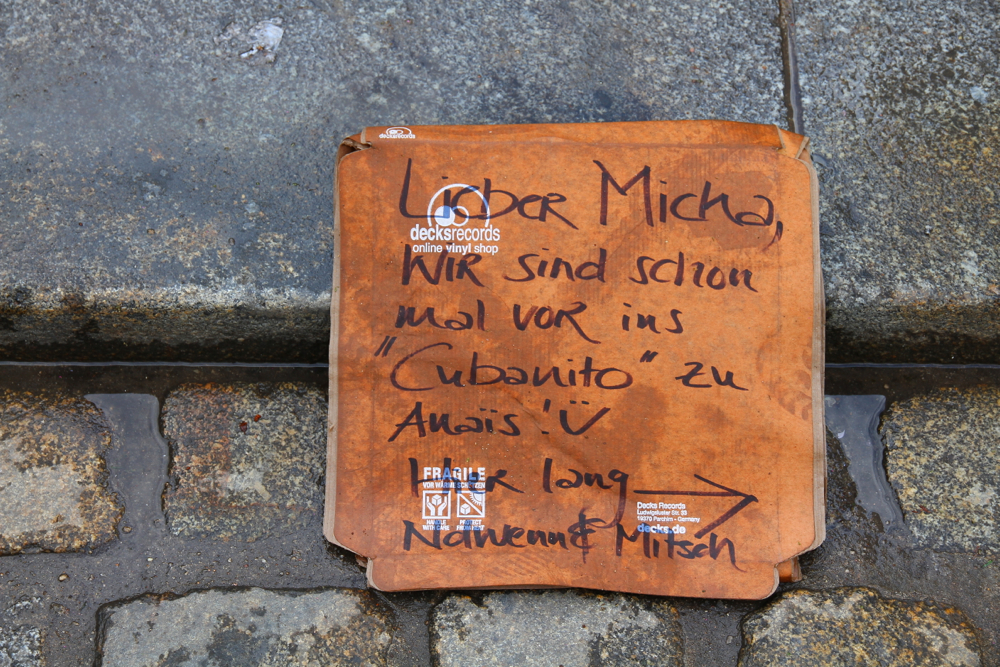 decksrecords
Lieber Micha,
decksrecords
online vinyl shop
Wir sind schon
mal vor ins
"Cubanito" zu
Anaïs!Ü
Hier lang →
FRAGILE
VOR WÄRME SCHÜTZEN
HANDLE WITH CARE
PROTECT FROM HEAT
Decks Records
Ludwigsluster Str. 93
19370 Parchim - Germany
decks.de
& Mitsch